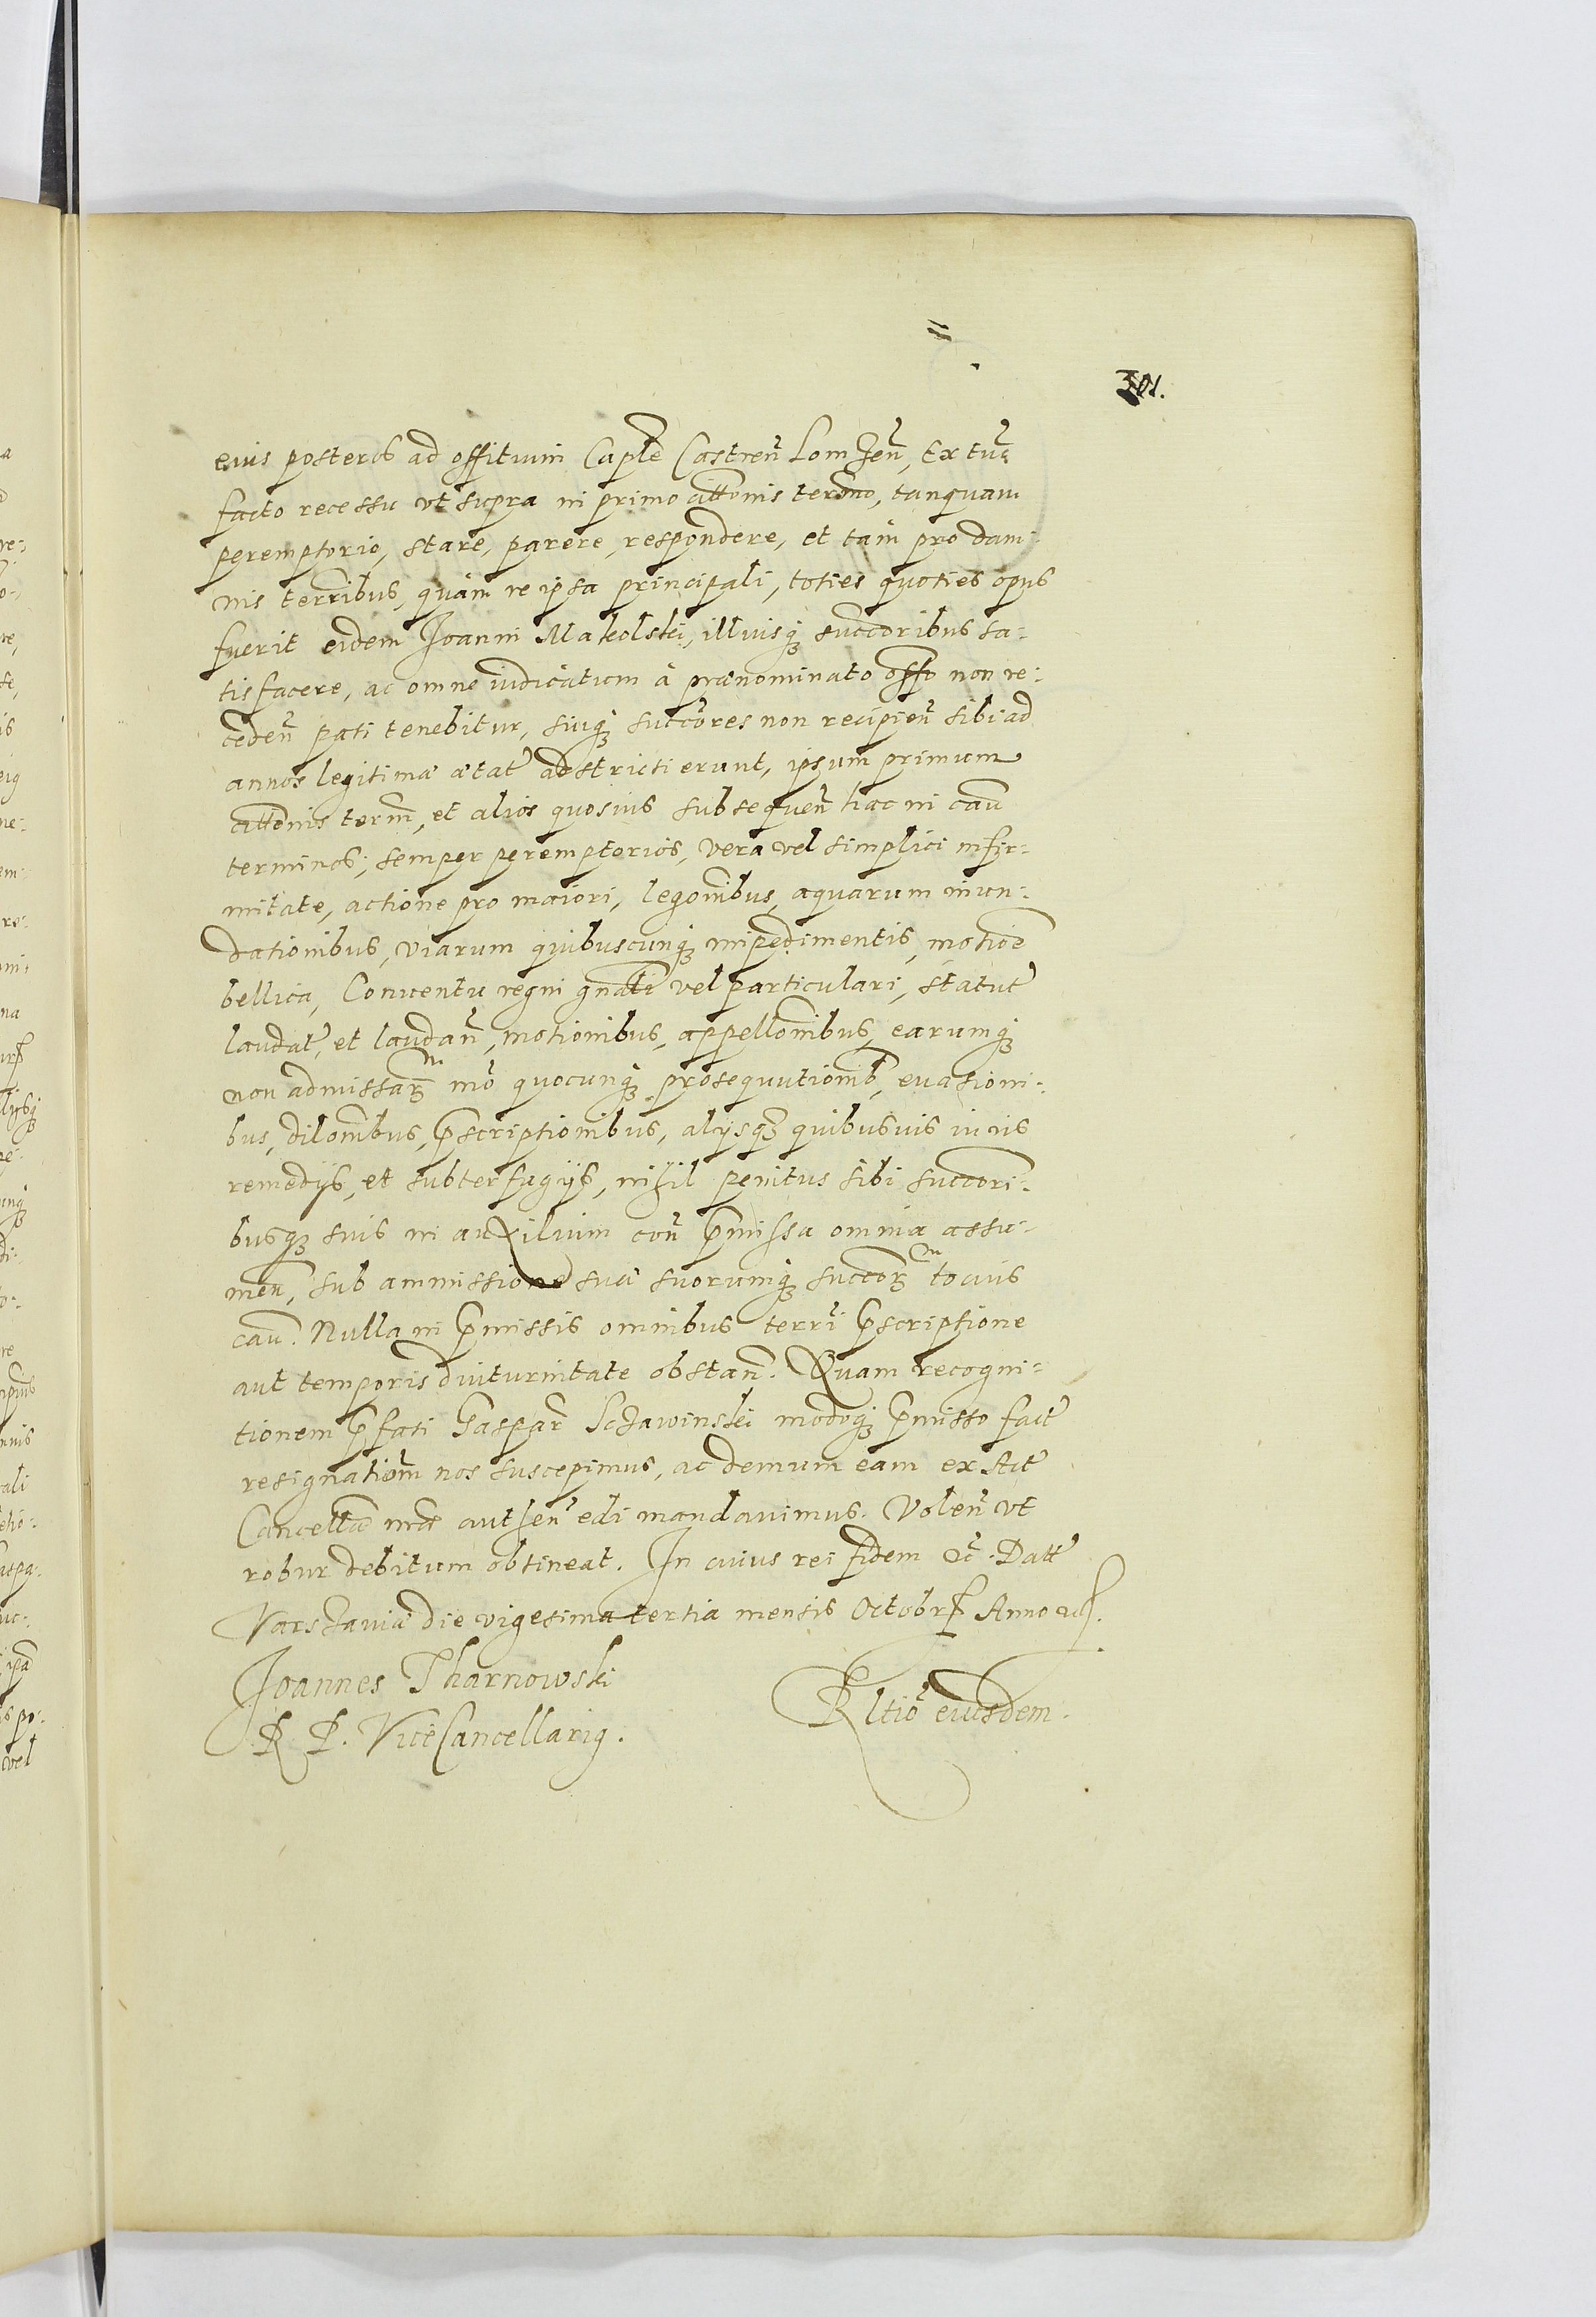 301.
eius posteros ad offitium Caplē Castreñ Lomzeñ, Ex tūc
facto recessu vt supra in primo cittōnis termno, tanquam
peremptorio, stare, parere, respondere, et tam pro dam-
nis terribus, quàm re ipsa principali, toties quoties opus
fuerit eidem Joanni Makolski, illiusq́ʒ succoribus sa-
tisfacere, ac omne iudicatum à prænominato offo non re-
cedeñ pati tenebitur, siuq́ʒ succōres non recipieñ sibi ad
annos legitimæ ætat adstricti erunt, ipsum primum
cittōnis term̄, et alios quosuis subsequeñ hac in cau̅
terminos, semper peremptorios, vera vel simplici infir-
mitate, actione pro maiori, legōnibus, aquarum inun-
dationibus, viarum quibuscunq́ʒ impedimentis, motioē
bellica, Conuentu regni gnāli vel particulari, statut
laudat, et laudañ, motionibus, appellōnibus, earumq́ʒ
non admissarʒ mō quocunq́ʒ prosequutionib̄, euasioni-
bus, dilōnibus, p̄scriptionibus, alijsqʒ quibusuis iuris
remedijs, et subterfugijs, nihil penitus sibi succori-
busqʒ suis in auxilium coñ p̄missa omnia assu-
meñ, sub ammissione sua suorumq́ʒ succorʒ tocius
cau̅. Nulla in p̄missis omnibus terrī p̄scriptione
aut temporis diuturnitate obstañ. Quam recogni-
tionem p̄fati Gaspar Sczawinski modoq́ʒ p̄misso fact
resignatiom̄ nos suscepimus, ac demum eam ex Act
Cancellā nrā autheñ edi mandauimus. Voleñ vt
robur debitum obtineat. In cuius rei fidem &c. Datt
Varszauiæ die vigesima tertia mensis Octobrꝭ Anno uꝭ.
Joannes Tharnowski
R P. ViceCancellariꝯ.
Rltiō eiusdem.